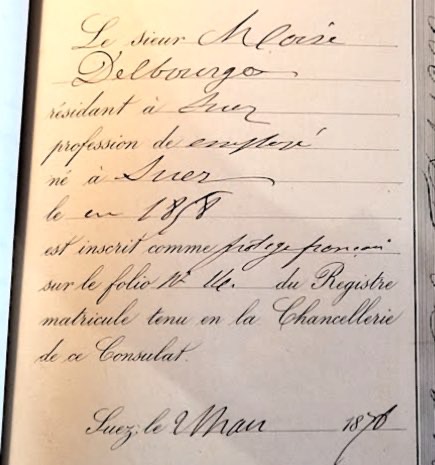 Le sieur Moïse
Delbourgo
résidant à Suez
profession de employé
né à Suez
le en 1858
est inscrit comme protégé français
sur le folio N° du Registre
matricule tenu en la Chancellerie
de ce Consulat.
Suez, le 2 Mars 1876